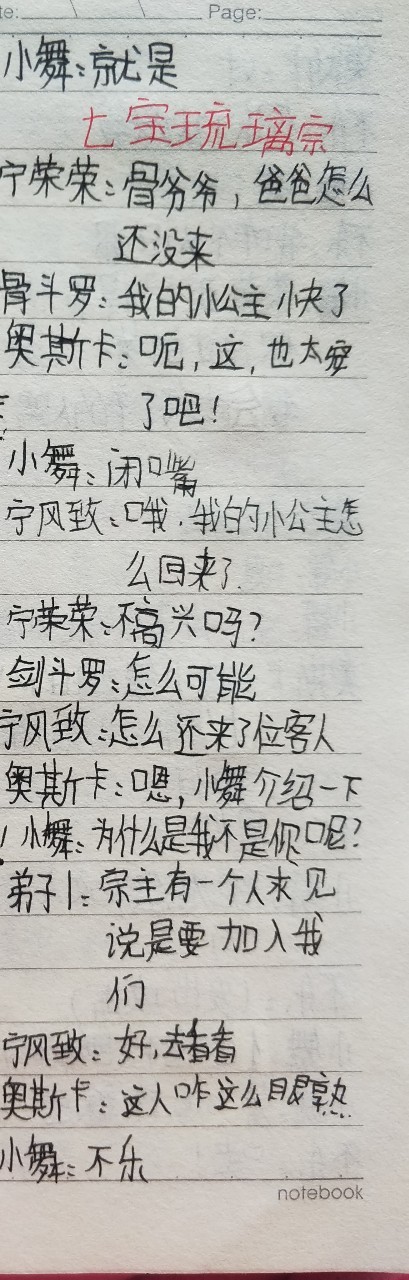 te: Page:
小舞:就是
七宝琉璃宗
宁荣荣:骨爷爷,爸爸怎么
还没来
骨斗罗:我的小公主快了
奥斯卡:呃,这,也太安
了吧!
小舞:闭嘴
宁风致:哦.我的小公主怎
么回来了.
宁荣荣:不高兴吗?
剑斗罗:怎么可能
宁风致:怎么还来了位客人
奥斯卡:嗯,小舞介绍一下
小舞:为什么是我不是你呢?
弟子1:宗主有一个人求见
说是要加入我
们
宁风致:好,去看看
奥斯卡:这人咋这么眼熟
小舞:不乐
notebook